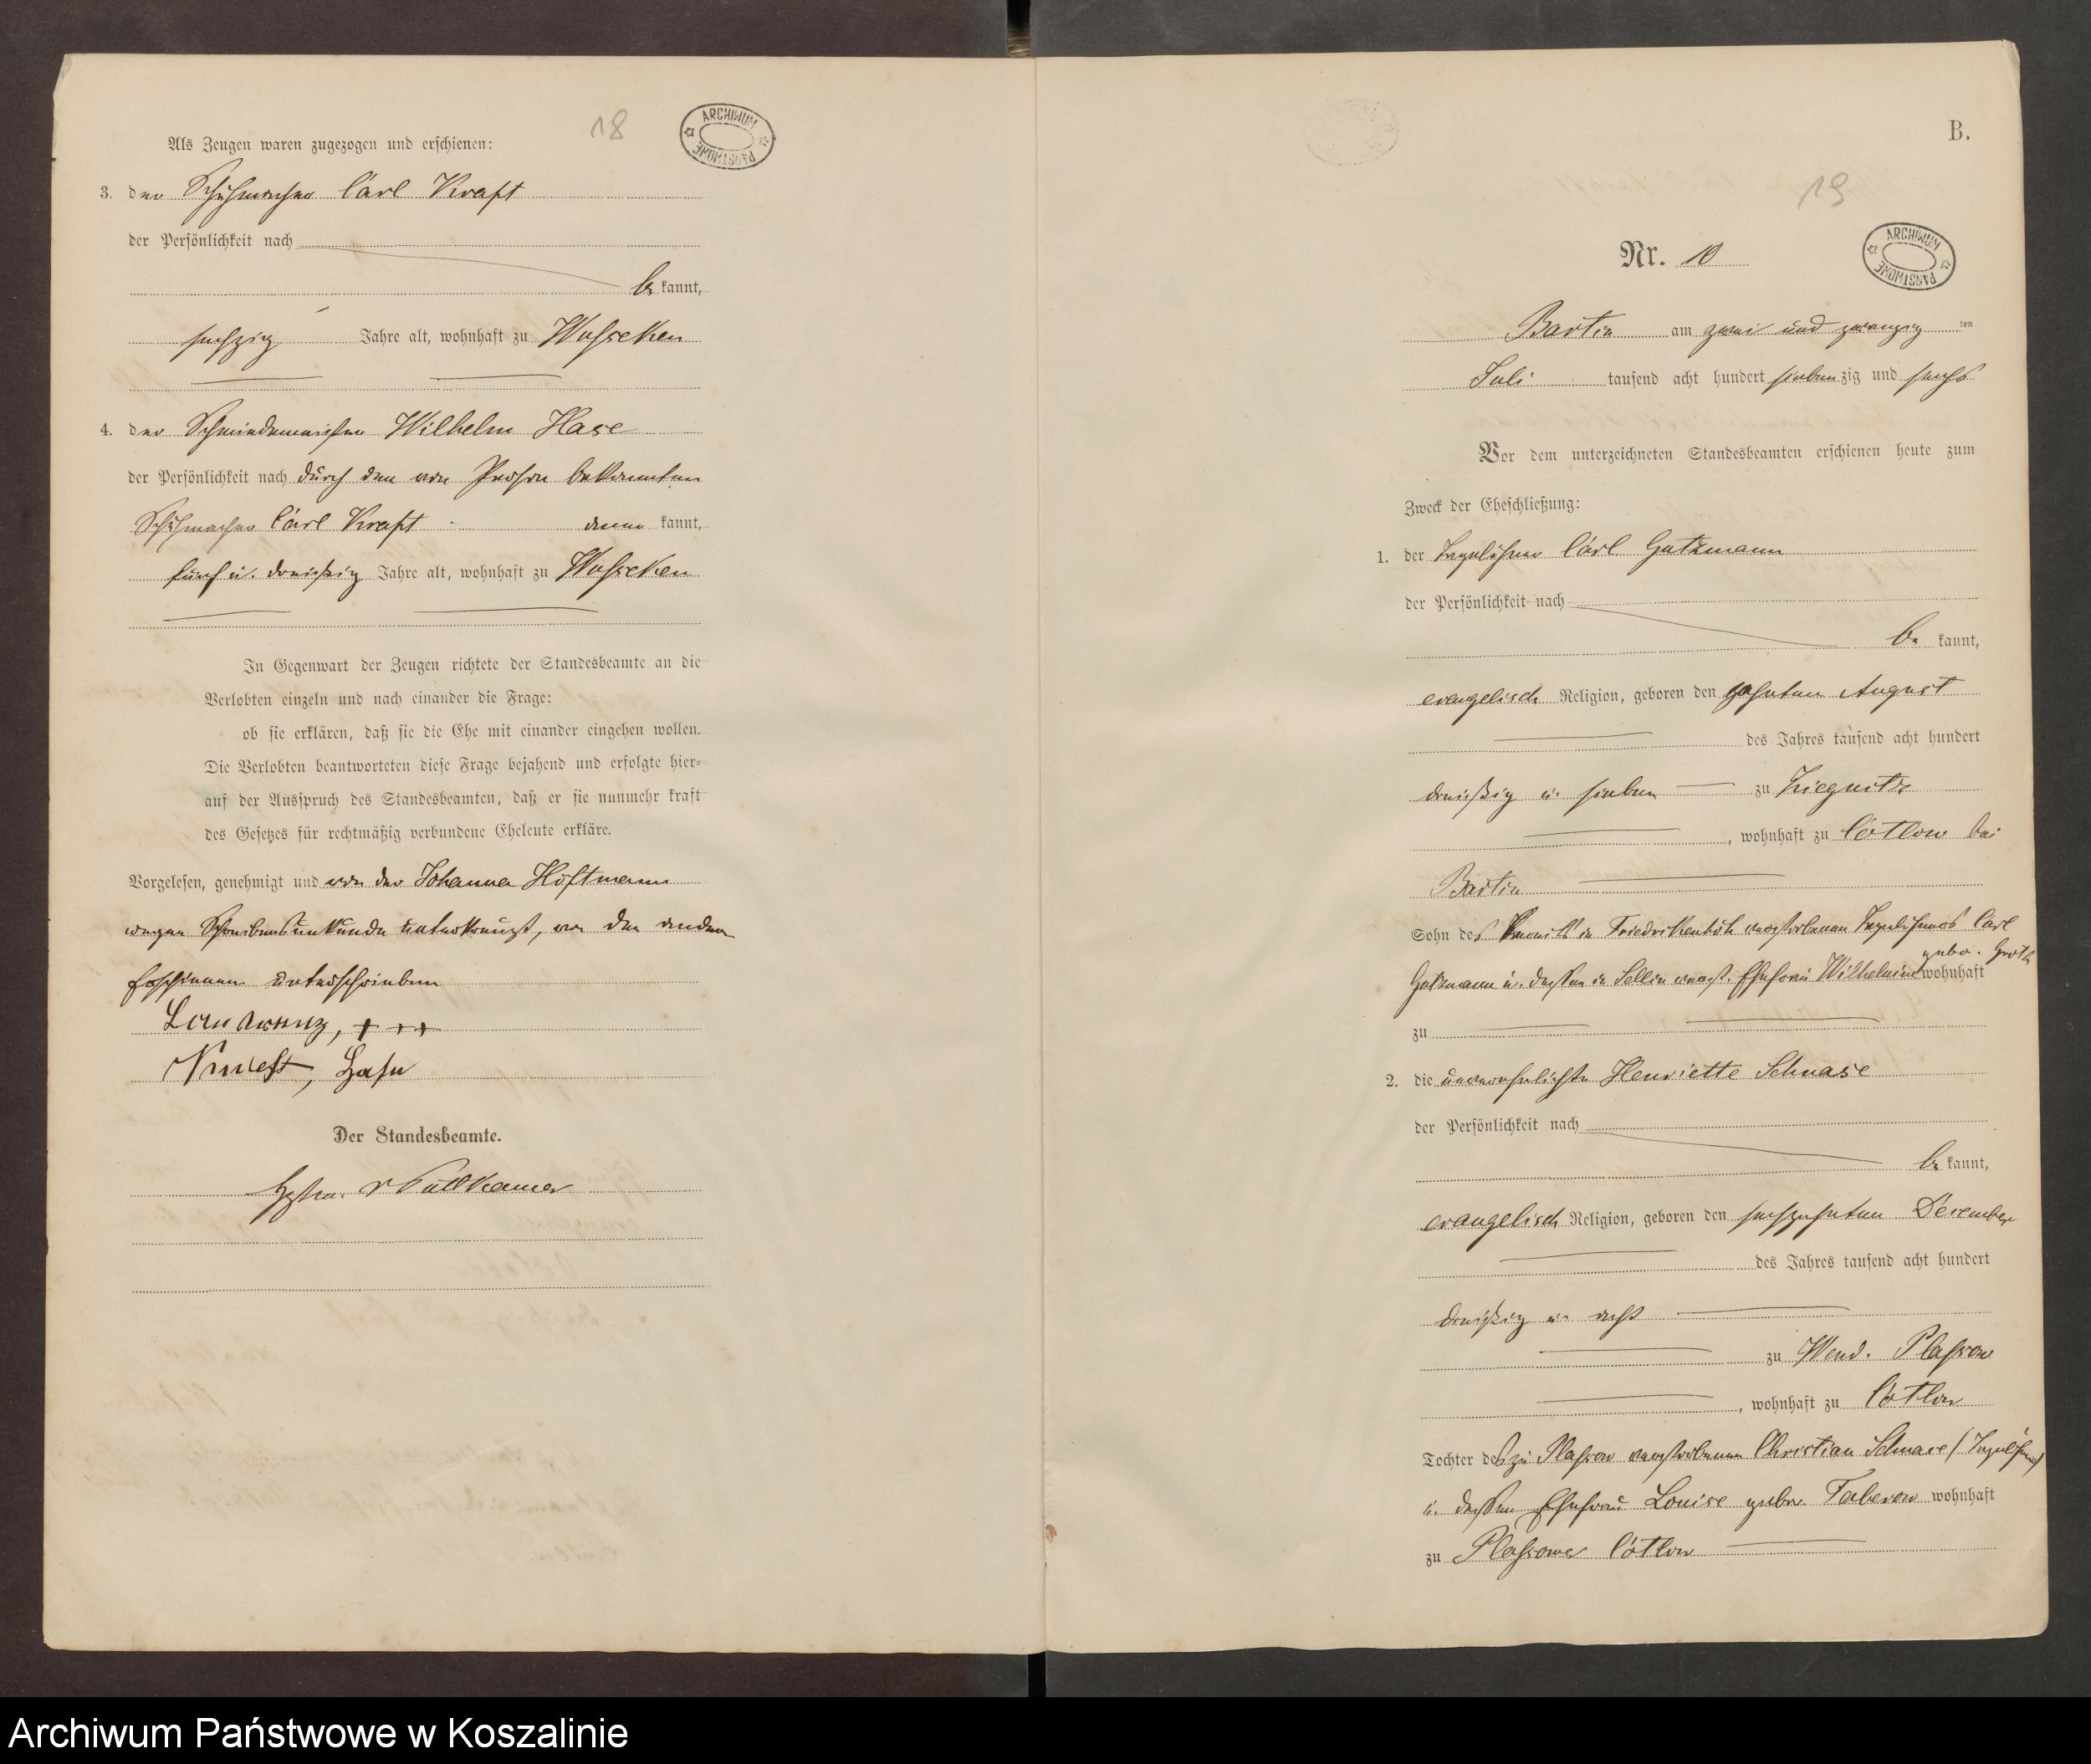 18
ARCHIWUM PAŃSTWOWE
Als Zeugen waren zugezogen und erschienen:
3. der Schuhmacher Carl Kraft
der Persönlichkeit nach
be kannt,
sechzig Jahre alt, wohnhaft zu Wusseken
4. der Schmiedemeister Wilhelm Hase
der Persönlichkeit nach durch den von Person bekannten
Schuhmacher Carl Kraft kannt,
fünf u. dreißig Jahre alt, wohnhaft zu Wusseken
In Gegenwart der Zeugen richtete der Standesbeamte an die
Verlobten einzeln und nach einander die Frage:
ob sie erklären, daß sie die Ehe mit einander eingehen wollen.
Die Verlobten beantworteten diese Frage bejahend und erfolgte hier=
auf der Ausspruch des Standesbeamten, daß er sie nunmehr kraft
des Gesetzes für rechtmäßig verbundene Eheleute erkläre.
Vorgelesen, genehmigt und von der Johanna Höftmann
wegen Schreibensunkunde unterkreuzt, von den andern
Erschienen unterschrieben
+++
Kraft, Hase
Der Standesbeamte.
v Puttkamer
B.
19
ARCHIWUM PAŃSTWOWE
Nr. 10
Bartin am zwei und zwanzig ten
Juli tausend acht hundert siebenzig und sechs
Vor dem unterzeichneten Standesbeamten erschienen heute zum
Zweck der Eheschließung:
1. der Tagelöhner Carl Gutzmann
der Persönlichkeit nach
be kannt,
evangelisch Religion, geboren den zehnten August
des Jahres tausend acht hundert
dreißig u. sieben zu
, wohnhaft zu Cötlow bei
Bartin
Sohn des bereits in Friedrikenhöh verstorbenen Tagelöhners Carl
gebor. Groth
Gutzmann u. dessen in Sellin verst. Ehefrau Wilhelmine wohnhaft
zu
2. die unverehelichte Henriette Schnase
der Persönlichkeit nach
be kannt,
evangelisch Religion, geboren den sechszehnten December
des Jahres tausend acht hundert
dreißig u. acht
zu Wend. Plassow
, wohnhaft zu Cötlow
Tochter des zu Plassow verstorbenen Christian Schnase (Tagelöhner)
u. dessen Ehefrau Louise gebor. Taberow wohnhaft
zu Cötlow
Archiwum Państwowe w Koszalinie